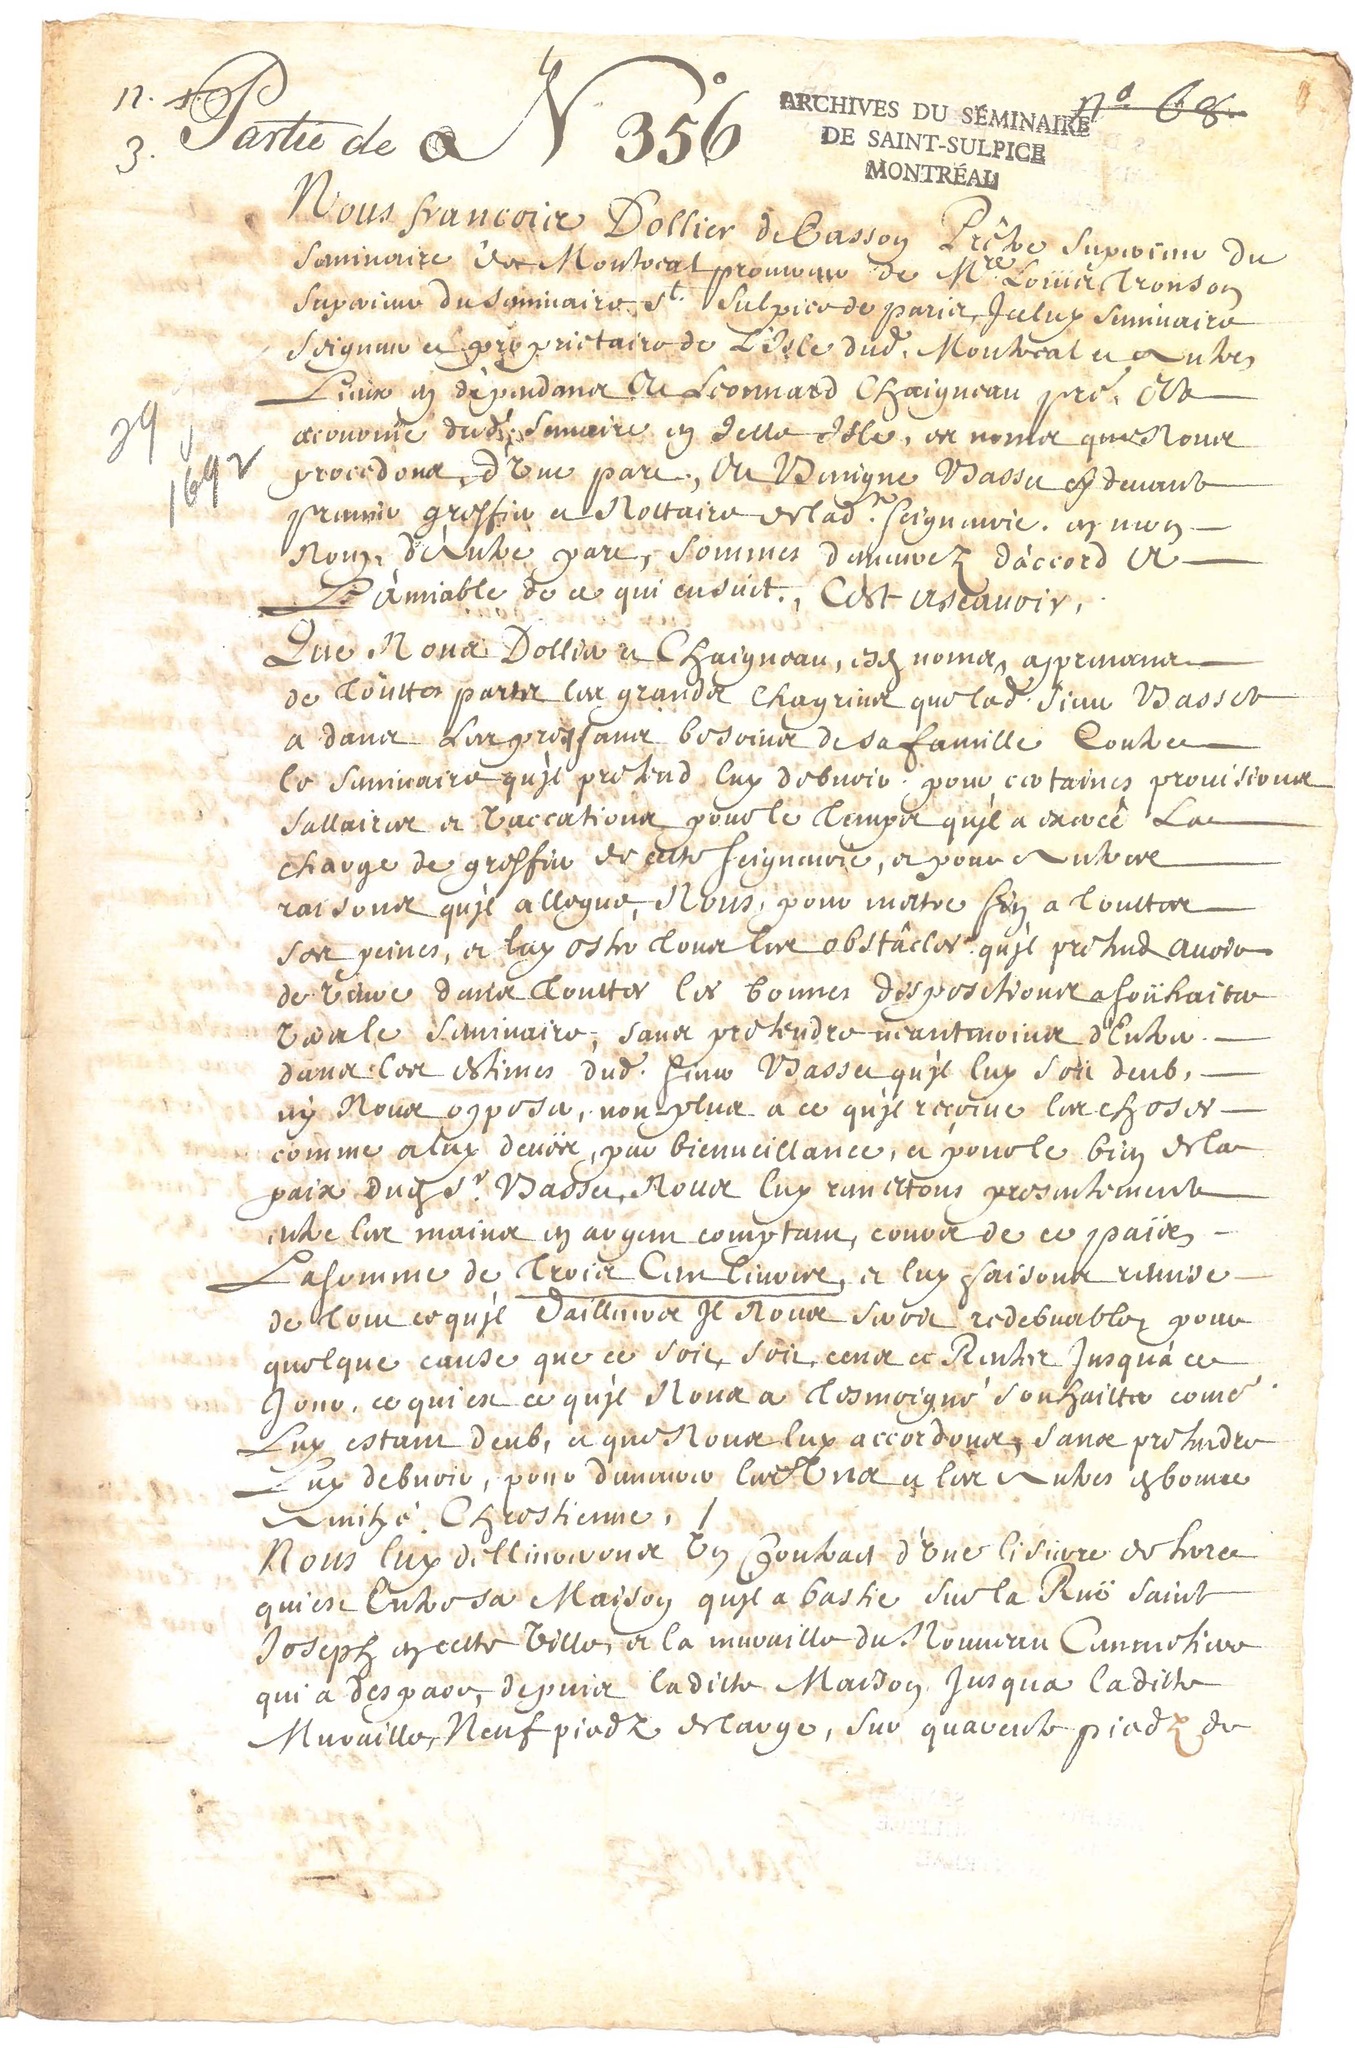 n. 1.
3.
Partie de a N° 356
n° 68.
ARCHIVES DU SÉMINAIRE
DE SAINT-SULPICE
MONTRÉAL
29
1692
Nous francois Dollier de Casson Prêtre Superieur du
Seminaire de Montreal procureur de Mre. Louis Tronson
Superieur du Seminaire St. Sulpice de paris, Jceluy Seminaire
Seigneur et proprietaire de L'Isle dud. Montreal et Autres
Lieux en dépendans Et Leonnard Chaigneau pre.
œconome dud. Semaire en Jelle Isle, es noms que Nous
procedons, d'Une part, Et Benigne Basset cy devant
premier greffier et Nottaire de lad. Seigneurie. en mon
Nom, d'Autre part, Sommes demeurez d'accord Et
L'àmiable de ce qui ensuit., C'est Ascavoir,
Que Nous Dollier et Chaigneau, esd noms, apprenans
de touttes partes les grands Chagrins que led. Sieur Basset
a dans Les pressans besoins de sa famille Contre
le Seminaire qu'jl pretend luy debvoir pour certaines provisions
Sallaires et Vaccations pour le temps qu'jl a exercé La
charge de greffier de cette Seigneurie, et pour Autres
raisons qu'jl allegue, Nous, pour mettre fin a touttes
Ses peines, et luy oster tous les obstâcles qu'jl pretend avoir
de Vivre dans touttes les bonnes dispositions a souhaitter
Vers le Seminaire, sans pretendre neantmoins d'Entrer
dans les estimes dud. Sieur Basset qu'jl luy soit deub,
ny Nous opposer, non plus a ce qu'jl reçoive les choses
comme a luy deües, par bienveillance, et pour le bien de la
paix dud Sr. Basset, Nous luy remettons presentement
entre les mains en argent comptant, cours de ce païs,
La somme de Trois Cent Livres, et luy faisons remise
de tout ce qu'jl d'ailleurs Jl Nous seroit redebvable, pour
quelque cause que ce soit, soit, cens et Rentes Jusqu'à ce
Jour, ce qui est ce qu'jl Nous a tesmoigné souhaitter comé
Luy estant deub, et que Nous luy accordons, sans pretendre
Luy debvoir, pour demeurer les Uns et les Autres en bonne
Amitié Chrestienne, /
Nous luy dellivrerons Un Contract d'Une lisiere de terre
qui est Entre sa Maison qu'jl a bastie sur la Ruë saint
Joseph en cette Ville, et la muraille du Nouveau Cimmetiere
qui a d'espace, depuis laditte Maison Jusqua laditte
Muraille, Neuf piedz de large, sur quarente piedz de